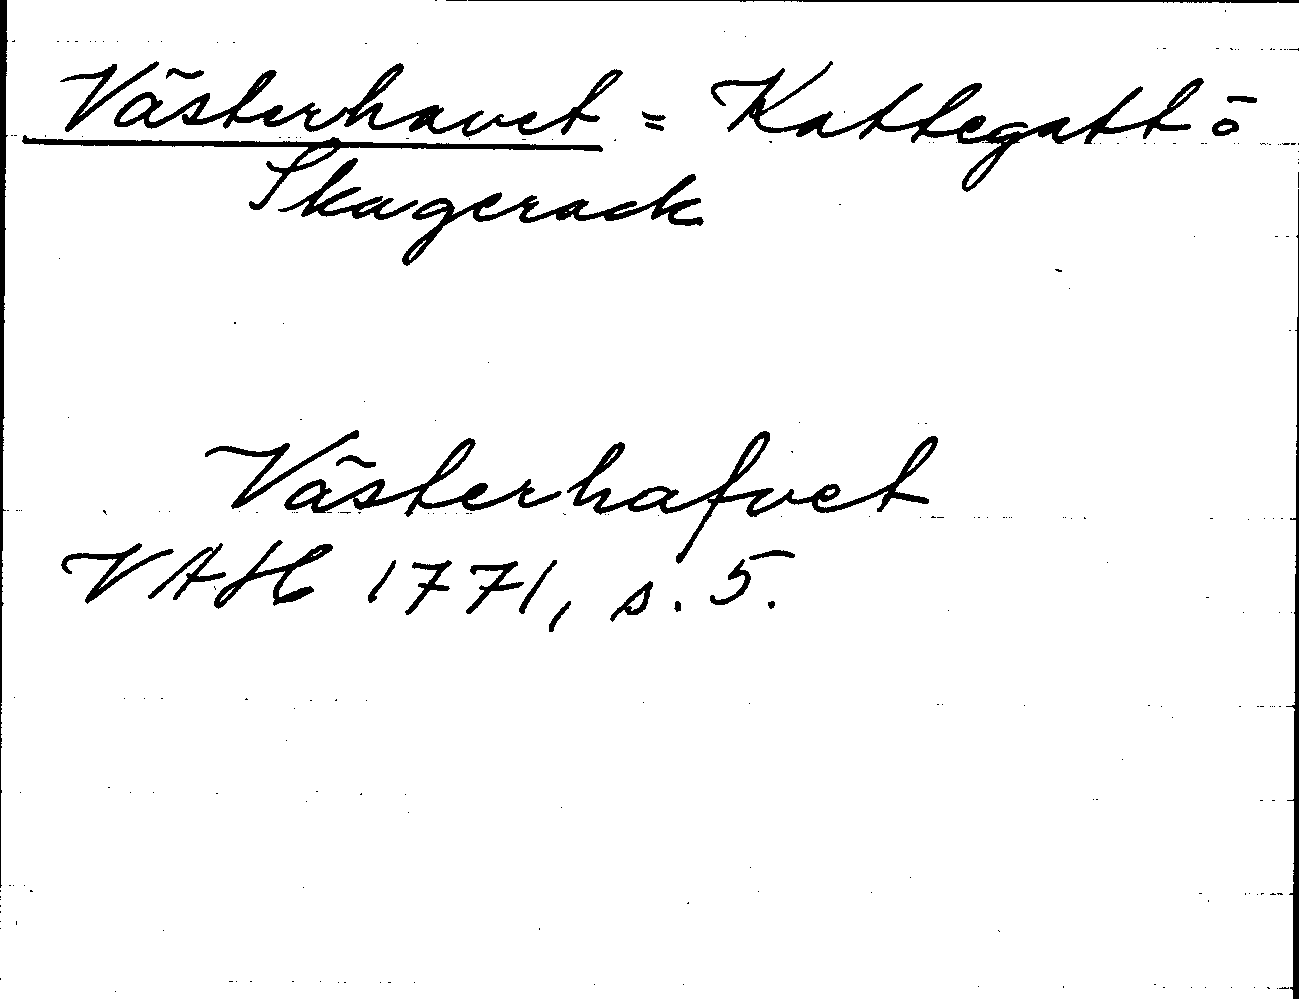 Västerhavet = Kattegatt ö
Skagerack
Västerhafvet
VAH 1771, s. 5.